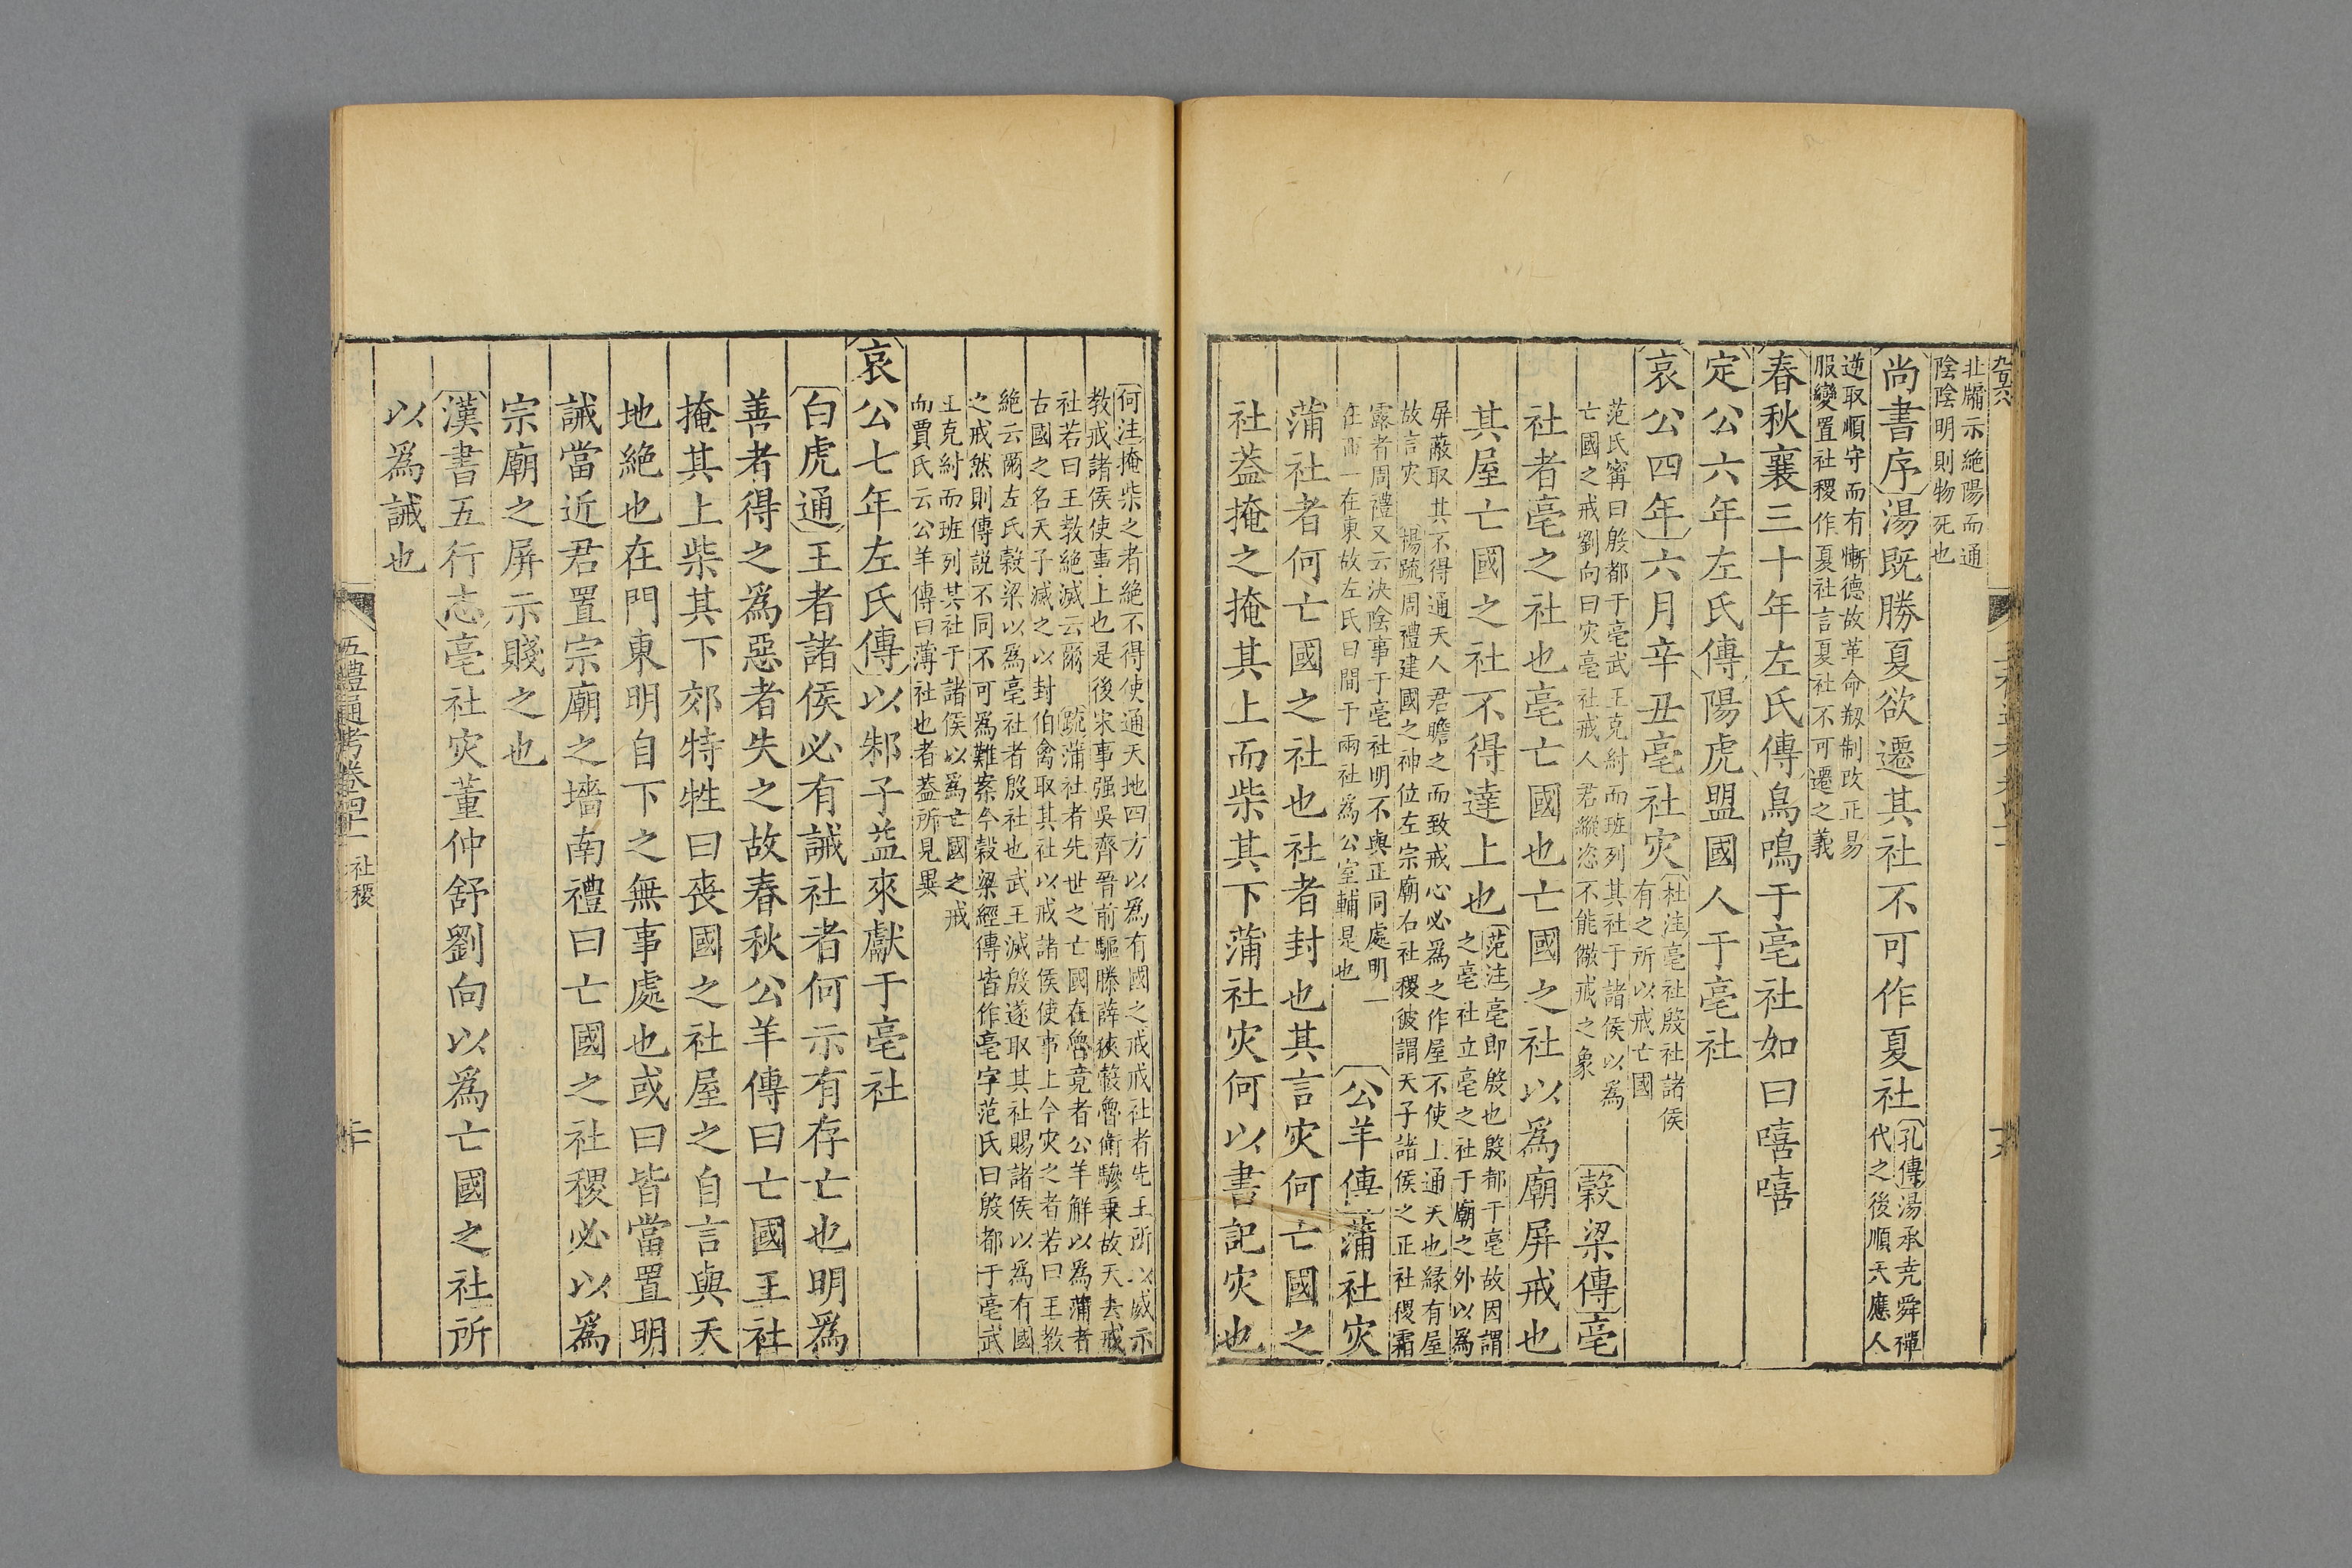 北牖示絶陽而通
陰陰明則物死也
尚書序湯既勝夏欲遷其社不可作夏社
孔傳湯承堯舜禪
代之後順天應人
逆取順守而有慚德故革命剏制改正易
服變置社稷作夏社言夏社不可遷之義
春秋襄三十年左氏傳鳥鳴于亳社如曰嘻嘻
定公六年左氏傳陽虎盟國人于亳社
哀公四年六月辛丑亳社灾
杜注亳社殷社諸侯
有之所以戒亡國
范氏甯曰殷都于亳武王克紂而班列其社于諸侯以爲
亡國之戒劉向曰灾亳社戒人君縱恣不能儆戒之象
穀梁傳亳
社者亳之社也亳亡國也亡國之社以爲廟屏戒也
其屋亡國之社不得達上也
范注亳即殷也殷都于亳故因謂
之亳社立亳之社于廟之外以爲
屏蔽取其不得通天人君瞻之而致戒心必爲之作屋不使上通天也緣有屋
故言灾 楊疏周禮建國之神位左宗廟右社稷彼謂天子諸侯之正社稷霜
露者周禮又云決陰事于亳社明不與正同處明一
在西一在東故左氏曰間于兩社爲公室輔是也
公羊傳蒲社灾
蒲社者何亡國之社也社者封也其言灾何亡國之
社葢掩之掩其上而柴其下蒲社灾何以書記灾也
何注掩柴之者絶不得使通天地四方以爲有國之戒戒社者先王所以威示
教戒諸侯使事上也是後宋事强吳齊晉前驅滕薛俠轂魯衛驂乘故天去戒
社若曰王教絶滅云爾 疏蒲社者先世之亡國在魯竟者公羊解以爲蒲者
古國之名天子滅之以封伯禽取其社以戒諸侯使事上今灾之者若曰王教
絶云爾左氏穀梁以爲亳社者殷社也武王滅殷遂取其社賜諸侯以爲有國
之戒然則傳說不同不可爲難案今穀梁經傳皆作亳字范氏曰殷都于亳武
王克紂而班列其社于諸侯以爲亡國之戒
而賈氏云公羊傳曰薄社也者葢所見異
哀公七年左氏傳以邾子益來獻于亳社
白虎通王者諸侯必有誡社者何示有存亡也明爲
善者得之爲惡者失之故春秋公羊傳曰亡國王社
掩其上柴其下郊特牲曰喪國之社屋之自言與天
地絶也在門東明自下之無事處也或曰皆當置明
誡當近君置宗廟之墻南禮曰亡國之社稷必以爲
宗廟之屏示賤之也
漢書五行志亳社灾董仲舒劉向以爲亡國之社所
以爲誡也
五禮通考卷四十一 社稷